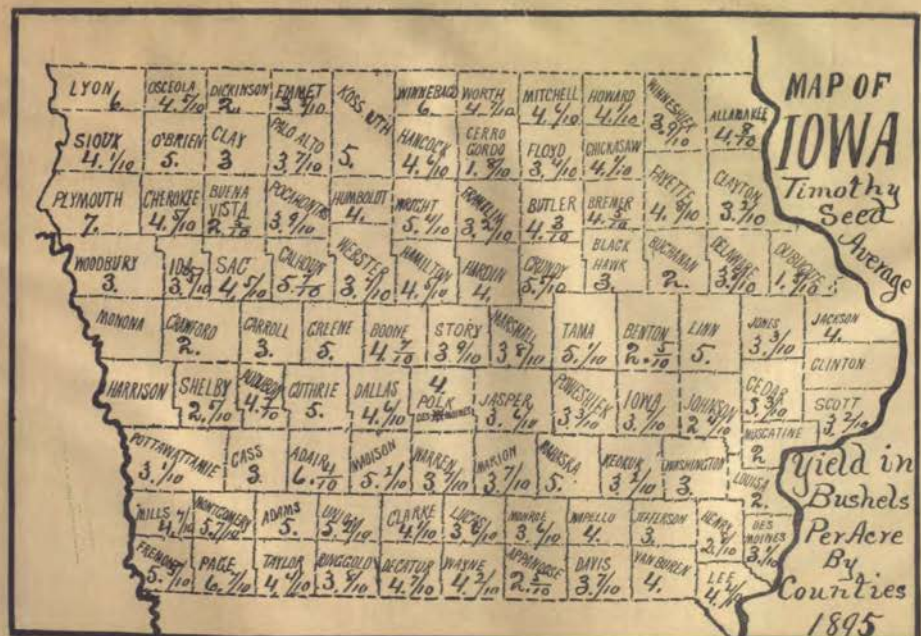 MAP OF
IOWA
Timothy
Seed
Average
Yield in
Bushels
Per Acre
By
Counties
1895
LYON 6.
OSCEOLA
DICKINSON 2.
EMMET
KOSSUTH 5.
WINNEBAGO 6.
WORTH
MITCHELL
HOWARD
WINNESHIEK 3. 9/10
ALLAMAKEE 4. 8/10
SIOUX 4. 1/10
O'BRIEN 5.
CLAY 3
PALO ALTO 3 7/10
HANCOCK 4. 6/10
CERRO GORDO 1. 8/10
FLOYD
CHICKASAW
PLYMOUTH 7.
CHEROKEE 4. 5/10
BUENA VISTA
POCAHONTAS 3 9/10
HUMBOLDT 4.
WRIGHT 5. 4/10
FRANKLIN 3. 2/10
BUTLER 4. 3/10
BREMER 4. 5/10
FAYETTE
CLAYTON
WOODBURY 3.
IDA
SAC 4. 5/10
CALHOUN 5. 7/10
WEBSTER
HAMILTON 4. 5/10
HARDIN 4.
GRUNDY
BLACK HAWK 3.
BUCHANAN 2.
DELAWARE
DUBUQUE
MONONA
CRAWFORD 2.
CARROLL 3.
GREENE 5.
BOONE 4 7/10
STORY 3 9/10
MARSHALL 3 8/10
TAMA 5. 1/10
BENTON 2. 5/10
LINN 5.
JONES 3. 3/10
JACKSON 4.
CLINTON
HARRISON
SHELBY
AUDUBON 4. 7/10
GUTHRIE 5.
DALLAS 4. 6/10
4. POLK
DES MOINES
JASPER 3. 6/10
POWESHIEK 3 3/10
IOWA
JOHNSON
CEDAR 3. 3/10
SCOTT 3. 2/10
MUSCATINE 2
POTTAWATTAMIE 3. 1/10
CASS 3.
ADAIR
MADISON
WARREN
MARION 3. 7/10
MAHASKA 5.
KEOKUK 3 2/10
WASHINGTON 3
LOUISA 2.
MILLS
MONTGOMERY 5. 7/10
ADAMS 5.
UNION
CLARKE
LUCAS
MONROE 3. 6/10
WAPELLO 4.
JEFFERSON 3.
HENRY
DES MOINES
FREMONT
PAGE 6. 7/10
TAYLOR 4 4/10
RINGGOLD 3. 8/10
DECATUR 4. 7/10
WAYNE 4. 2/10
APPANOOSE 2. 5/10
DAVIS 3. 7/10
VAN BUREN 4.
LEE